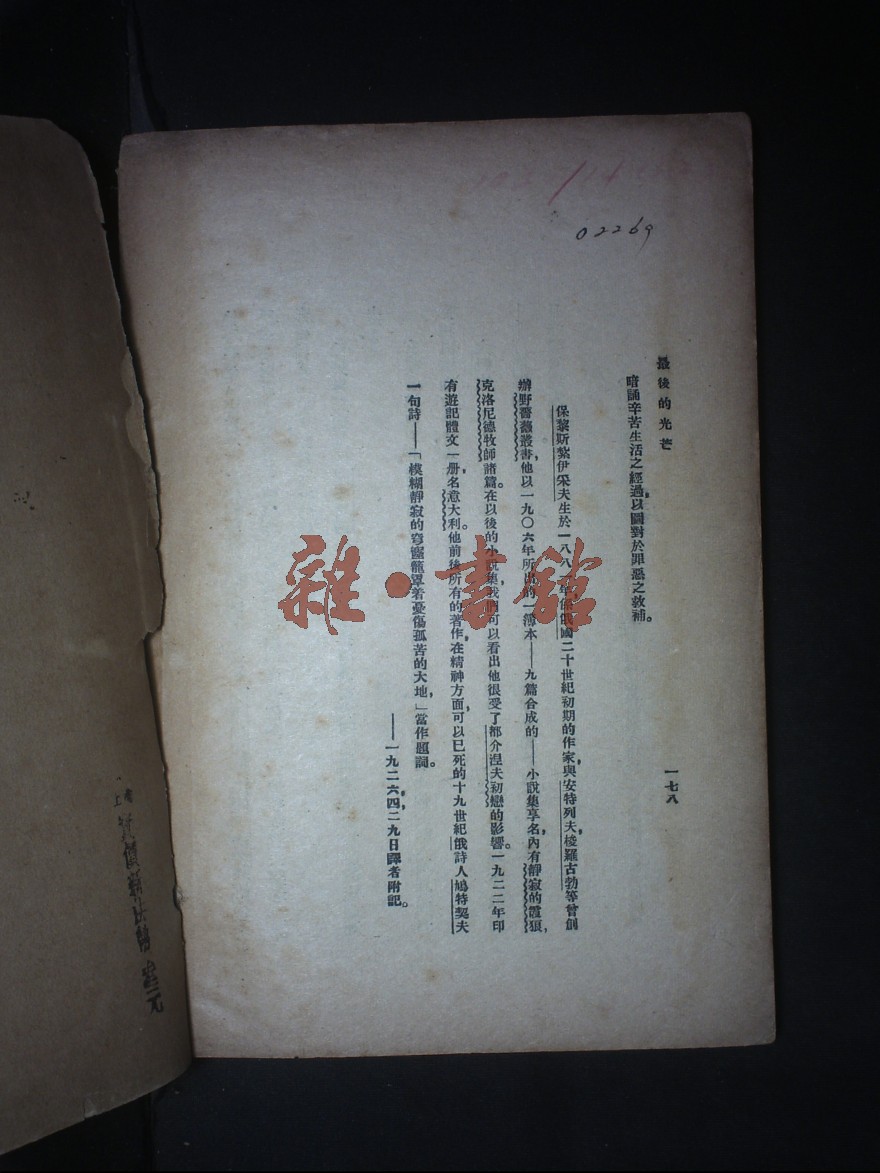 02269
最後的光芒
一七八
暗誦辛苦生活之經過，以圖對於罪惡之救補。
保黎斯紮伊采夫生於一八八一年，係俄國二十世紀初期的作家，與安特列夫，梭羅古勃等曾創
辦野薔薇叢書，他以一九〇六年所出的一簿本——九篇合成的——小說集享名，內有靜寂的霞，狼，
克洛尼德牧師諸篇。在以後的小說集，我們可以看出他很受了都介涅夫初戀的影響。一九二二年印
有遊記體文一册，名意大利。他前後所有的著作，在精神方面，可以已死的十九世紀俄詩人鳩特契夫
一句詩——「模糊靜寂的穹窿籠罩着憂傷孤苦的大地，」當作題詞。
——一九二六，四，二九日譯者附記。
雜·書館